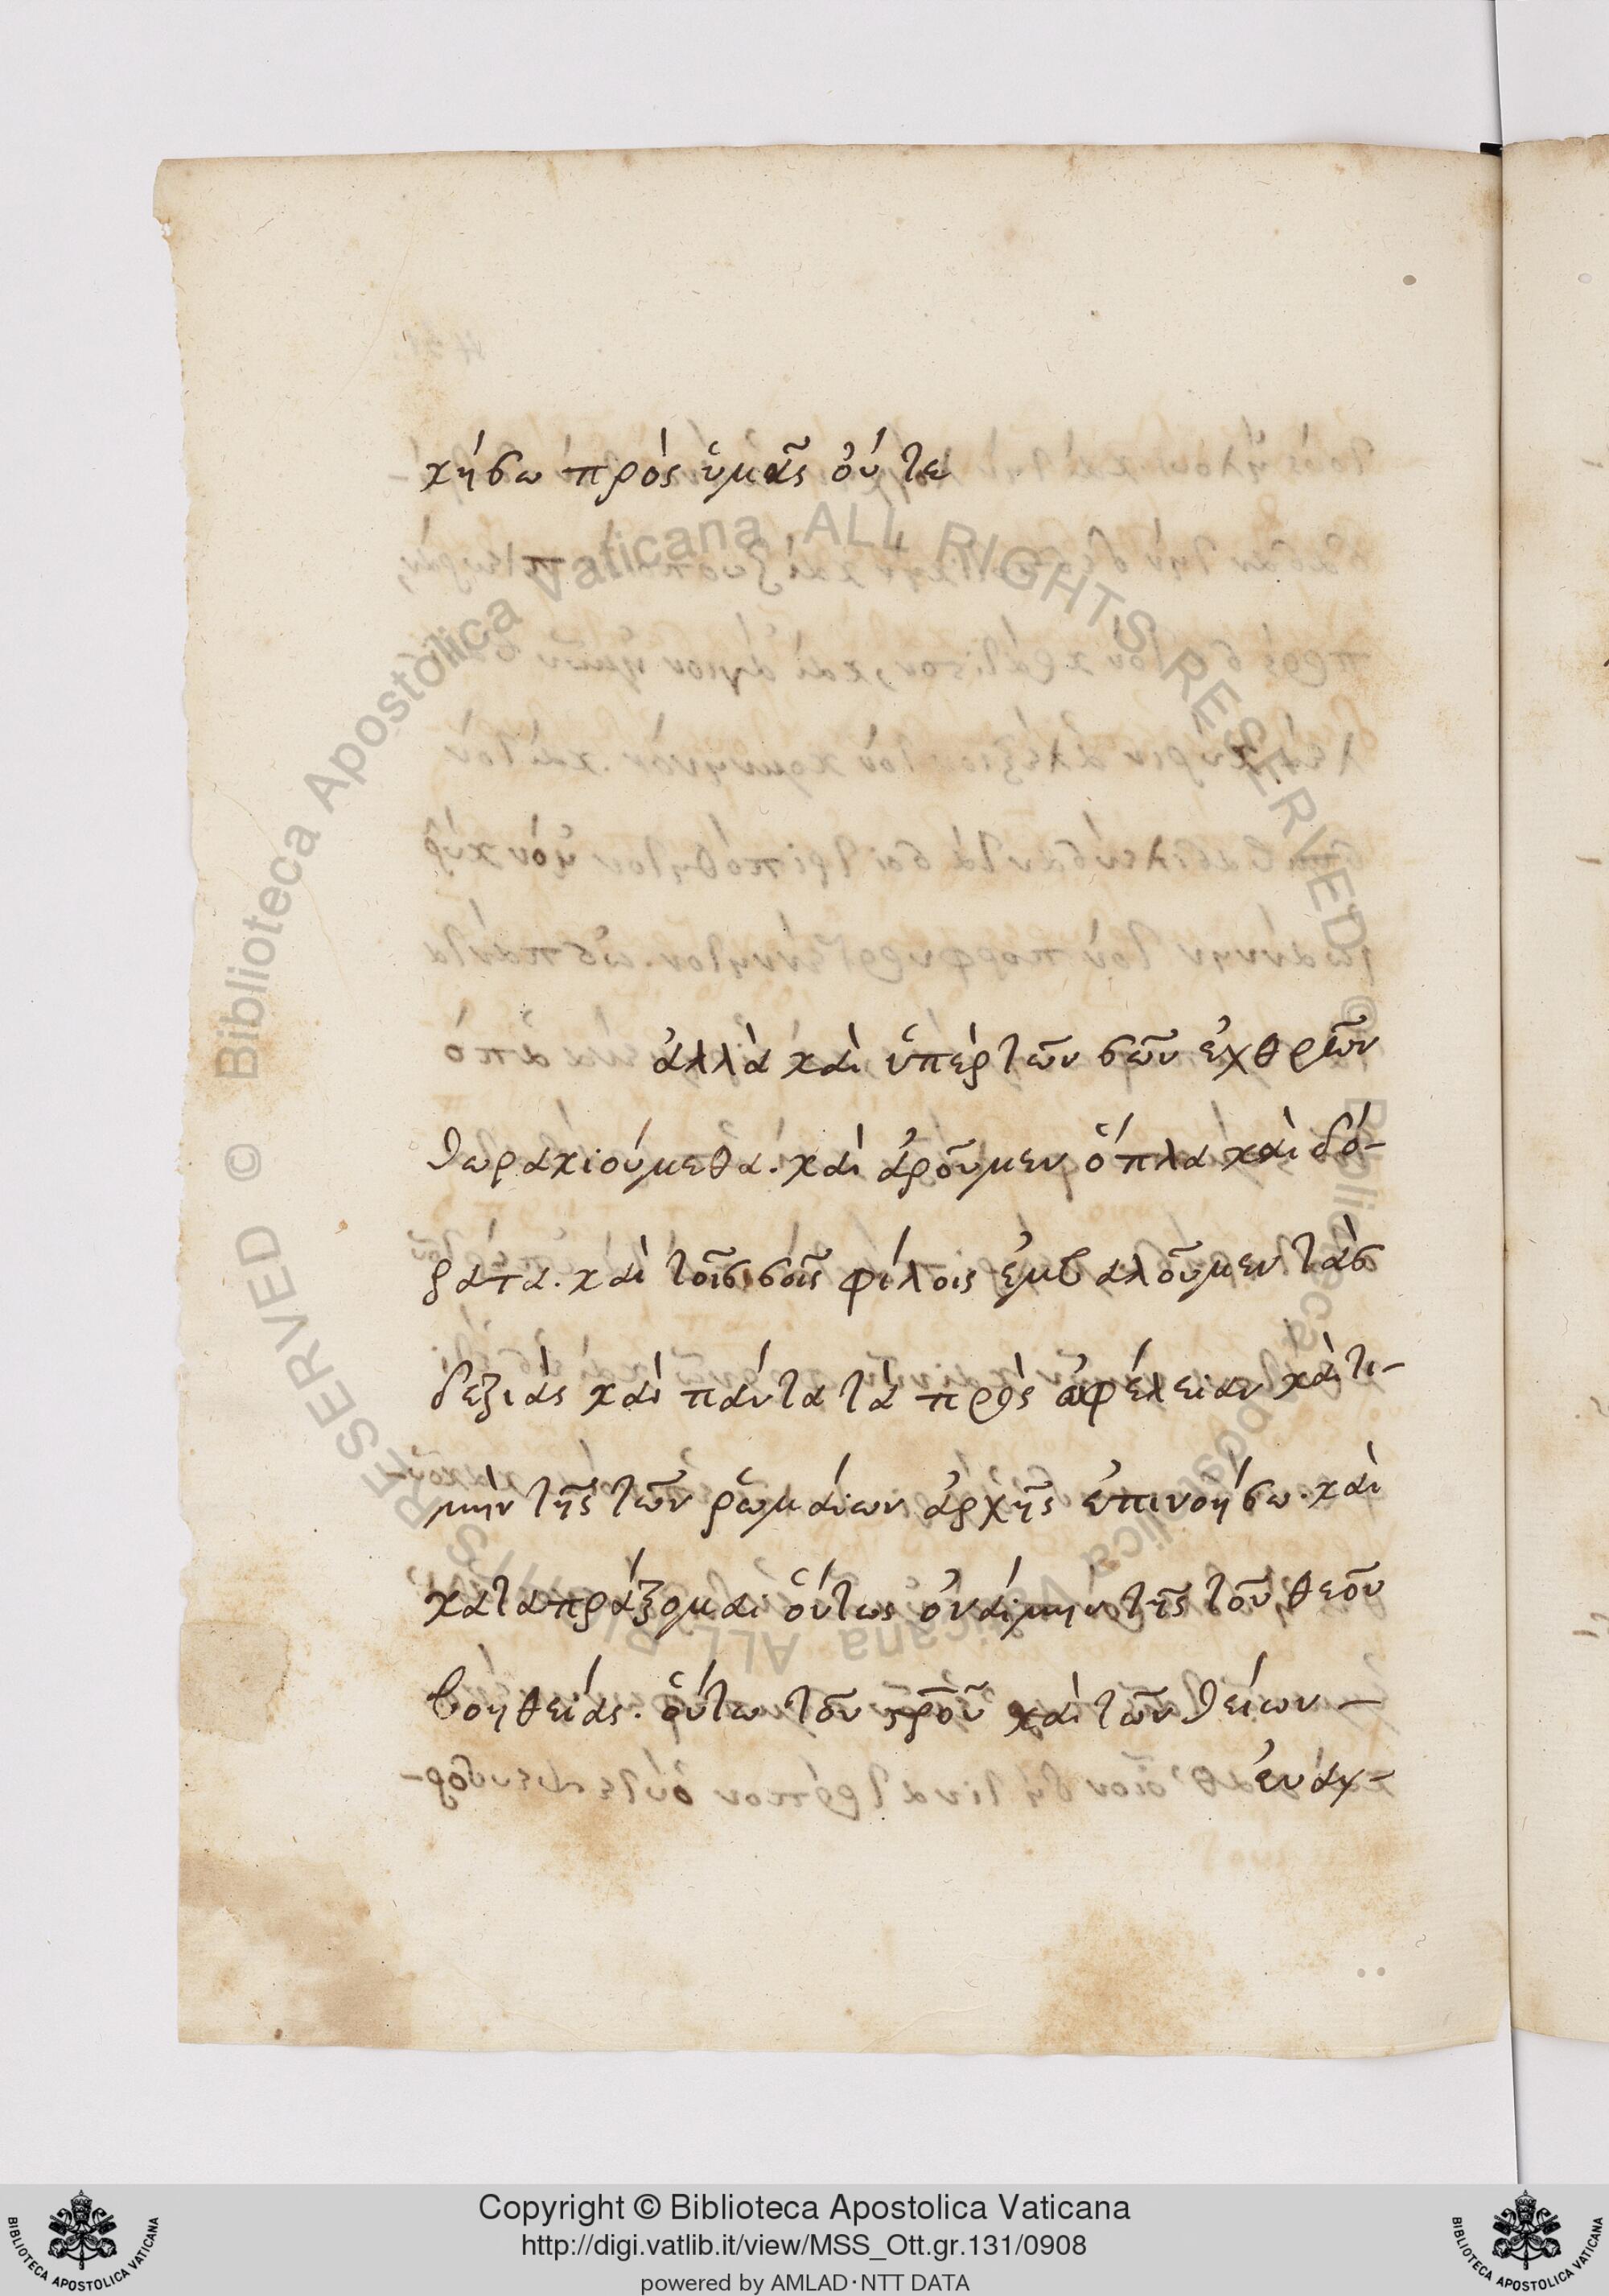 κήσω πρὸς ὑμᾶς οὔτε
ἀλλὰ καὶ ὑπὲρ τῶν σῶν ἐχθρῶν
θωρακιούμεθα. καὶ ἀροῦμεν ὅπλα καὶ δό-
ρατα. καὶ τοῖς σοῖς φίλοις ἐμβαλοῦμεν τὰς
δεξιάς καὶ πάντα τὰ πρὸς ὠφέλειαν καὶ τι-
μὴν τῆς τῶν ῥωμαίων ἀρχῆς ἐπινοήσω. καὶ
καταπράξομαι οὕτως ὀναίμην τῆς τοῦ θεοῦ
βοηθείας. οὕτω τοῦ σρ̅οῦ καὶ τῶν θείων —
ἐυαγ-
© Biblioteca Apostolica Vaticana ALL RIGHTS RESERVED
© Biblioteca Apostolica Vaticana ALL RIGHTS RESERVED
Copyright © Biblioteca Apostolica Vaticana
http://digi.vatlib.it/view/MSS_Ott.gr.131/0908
powered by AMLAD·NTT DATA
BIBLIOTECA APOSTOLICA VATICANA
BIBLIOTECA APOSTOLICA VATICANA